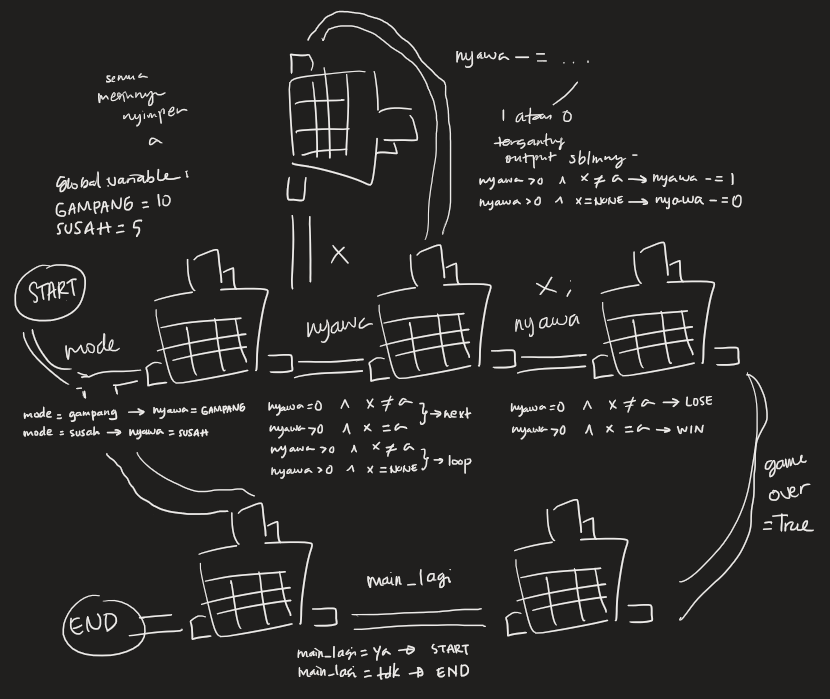 semua
mesinnya
nyimpen
a
Global variable :
GAMPANG = 10
SUSAH = 5
nyawa - = ...
1 atau 0
tergantung
output sblmny -
nyawa > 0 ∧ x ≠ a → nyawa -= 1
nyawa > 0 ∧ x = NONE → nyawa -= 0
START
mode
x
nyawa
x ;
nyawa
mode = gampang → nyawa = GAMPANG
mode = susah → nyawa = SUSAH
nyawa = 0 ∧ x ≠ a
nyawa > 0 ∧ x = a
→ next
nyawa > 0 ∧ x ≠ a
nyawa > 0 ∧ x = NONE
→ loop
nyawa = 0 ∧ x ≠ a → LOSE
nyawa > 0 ∧ x = a → WIN
game
over
= True
main_lagi
END
main_lagi = ya → START
main_lagi = tdk → END